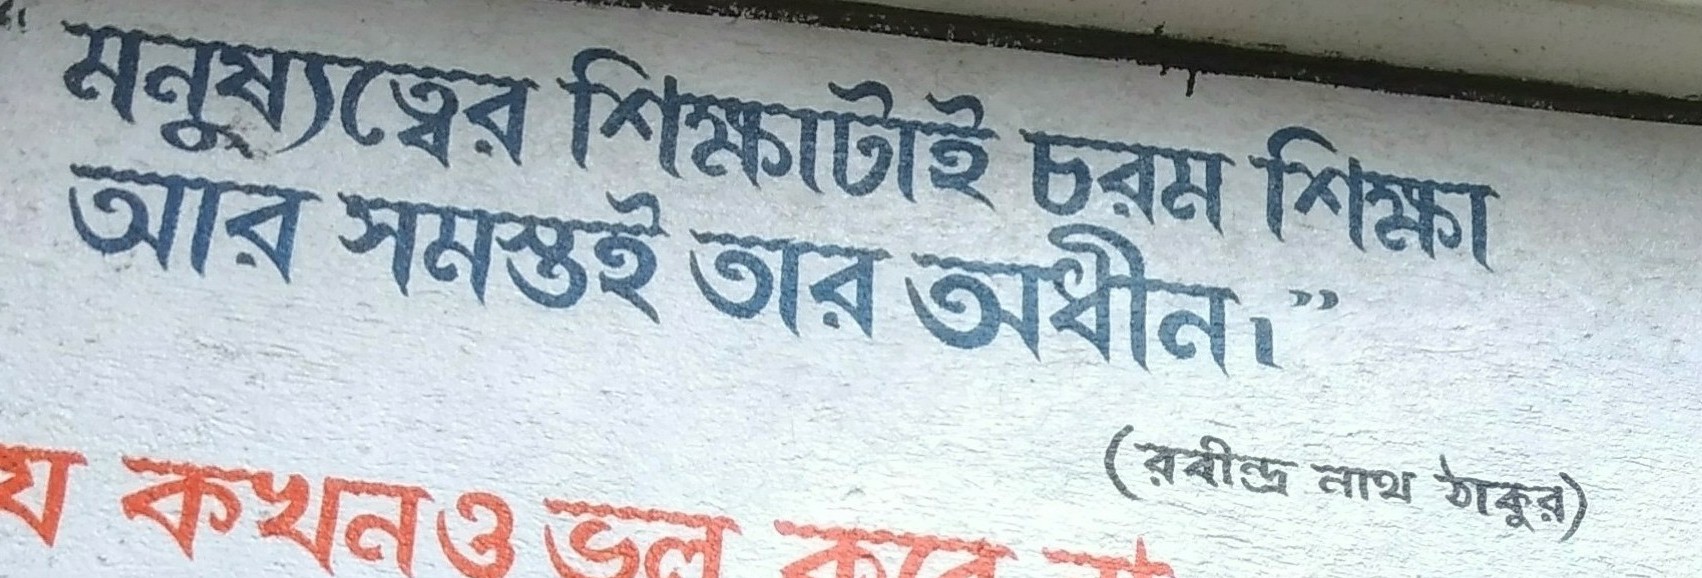 “মনুষ্যত্বের শিক্ষাটাই চরম শিক্ষা
আর সমস্তই তার অধীন।”
(রবীন্দ্র নাথ ঠাকুর)
কখনও